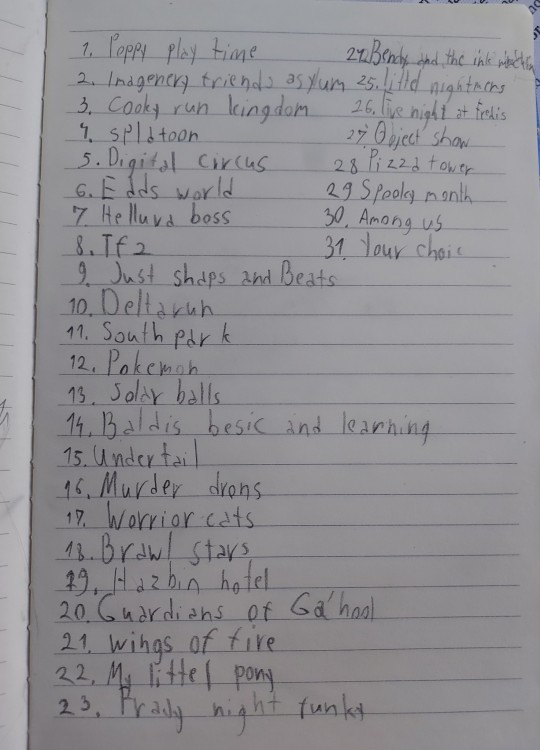 1. Poppy play time
2. Imagenery friends asylum
3. Cooky run kingdom
4. splatoon
5. Digital circus
6. Edds world
7. Helluva boss
8. Tf2
9. Just shaps and Beats
10. Deltarun
11. South park
12. Pokemon
13. Solar balls
14. Baldis besic and learning
15. Undertail
16. Murder drons
17. Worrior cats
18. Brawl stars
19. Hazbin hotel
20. Guardians of Ga'hool
21. wings of fire
22. My littel pony
23. Frady night funky
24. Bendy and the ink
25. Littel nightmers
26. Five night at Fredis
27 Object show
28 Pizza tower
29 Spooky month
30. Among us
31. Your choic